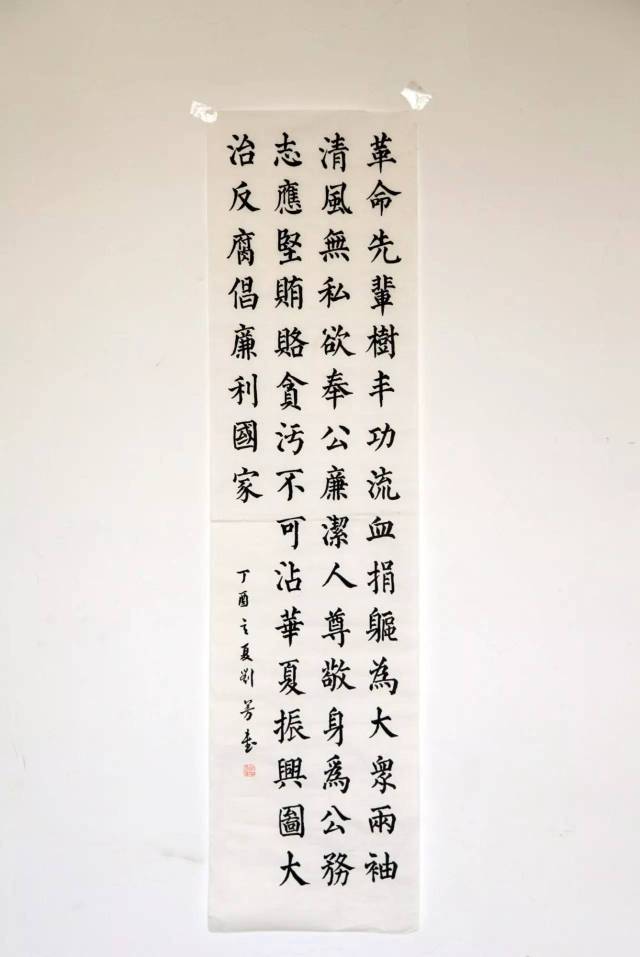 革命先輩樹丰功流血捐軀為大眾兩袖
清風無私欲奉公廉潔人尊敬身爲公務
志應堅賄賂貪汚不可沾華夏振興圖大
治反腐倡廉利國家
丁酉之夏劉芳書